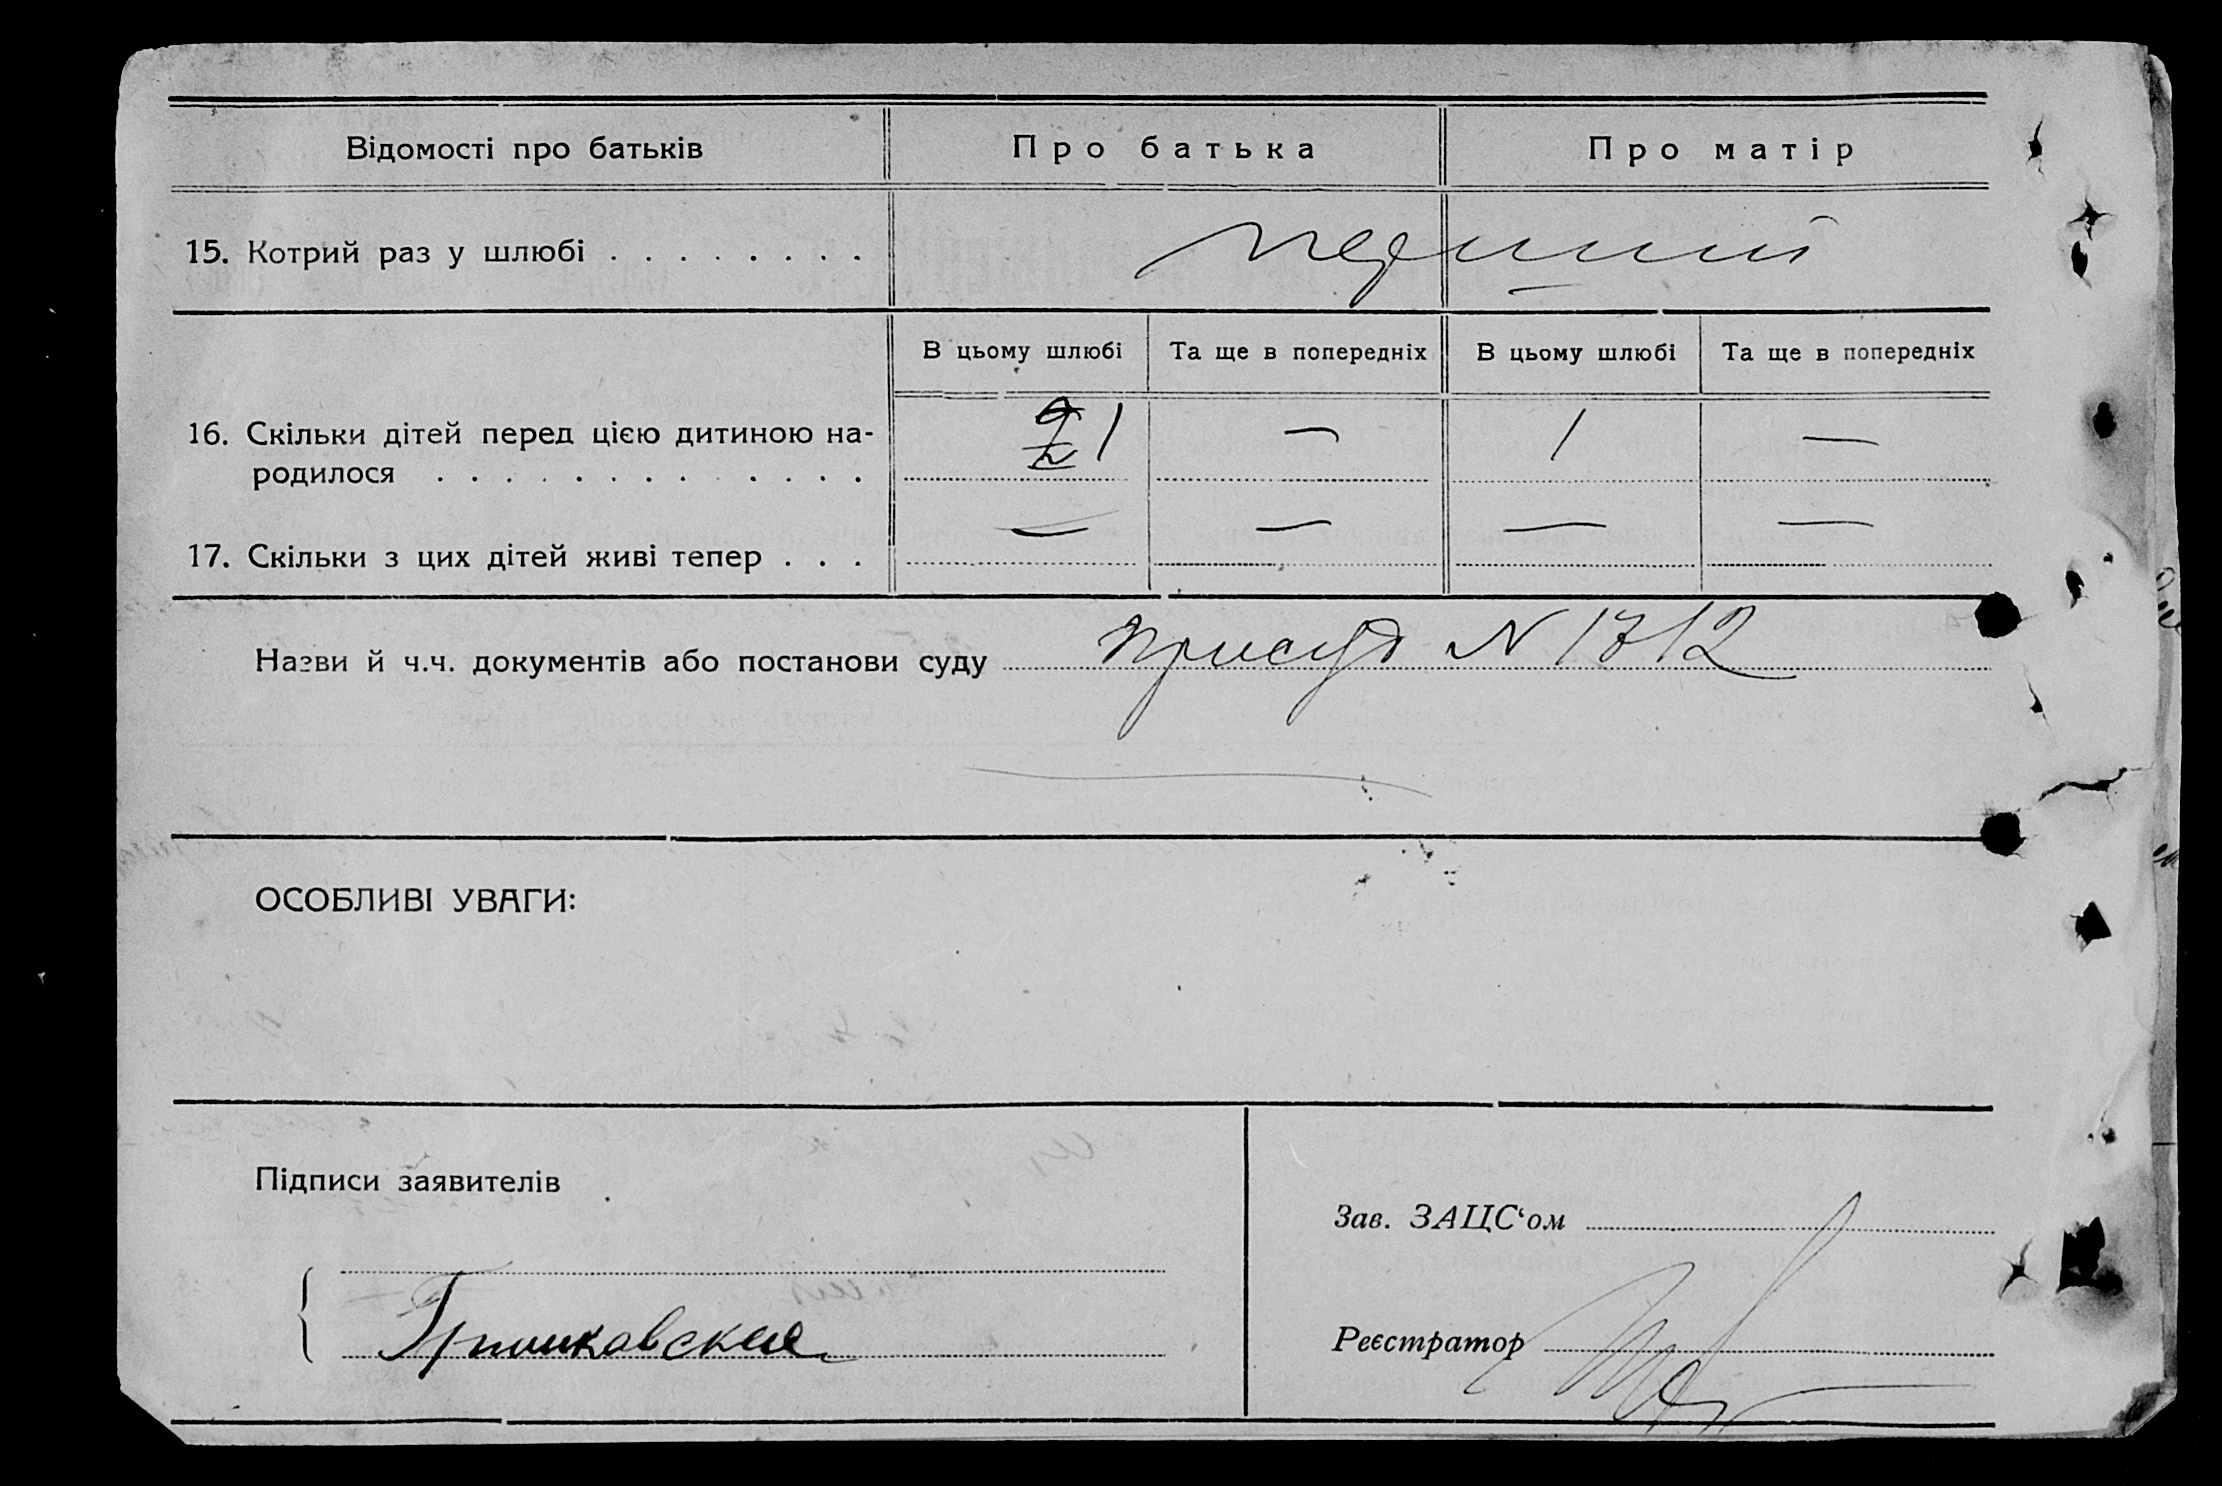 Відомості про батьків Про батька Про матір
15. Котрий раз у шлюбі . . . . . . . . перший
В цьому шлюбі Та ще в попередніх В цьому шлюбі Та ще в попередніх
16. Скільки дітей перед цією дитиною на- 1 — 1 —
родилося . . . . . . . . . . . . .
17. Скільки з цих дітей живі тепер . . . — — — —
Назви й ч.ч. документів або постанови суду присуд N 1712
ОСОБЛИВІ УВАГИ:
Підписи заявителів
Зав. ЗАЦС‘ом
Гришковская
Реєстратор